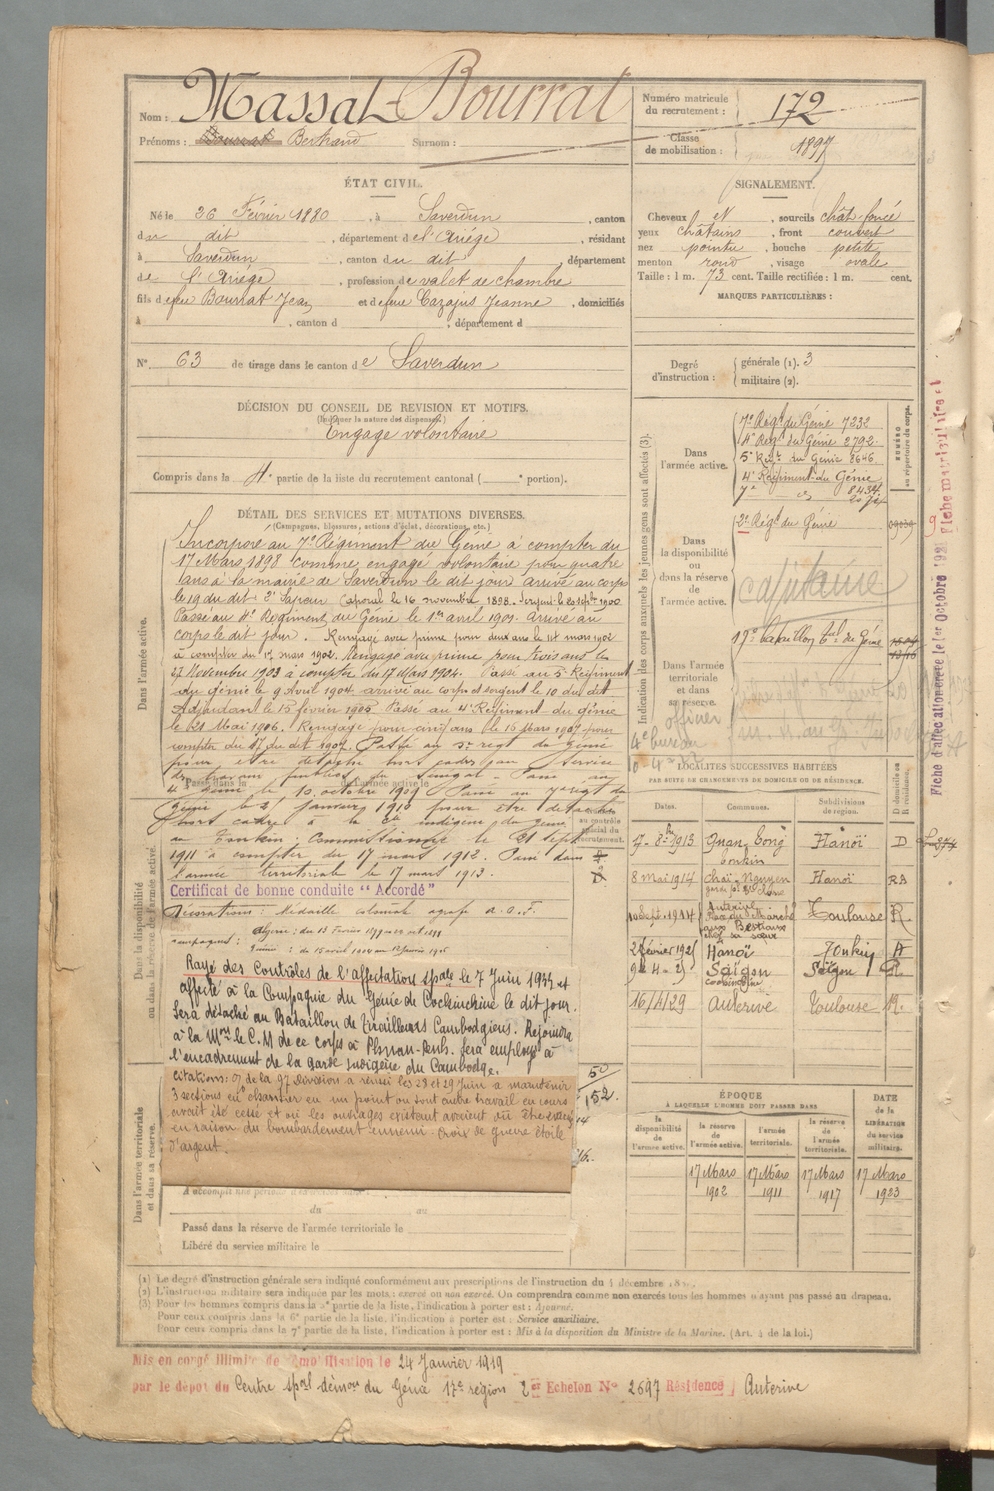 Nom : Massat-Bourrat
Prénoms : Bourrat Bertrand Surnom :
Numéro matricule du recrutement : 172
Classe de mobilisation : 1897
ÉTAT CIVIL.
Né le 26 Février 1880, à Saverdun, canton
du dit, département de l'Ariège, résidant
à Saverdun, canton du dit, département
de l'Ariège, profession de valet de chambre
fils de feu Bourrat Jean et de feue Cazajus Jeanne, domiciliés
à , canton d , département d
No 63 de tirage dans le canton de Saverdun
SIGNALEMENT.
Cheveux et , sourcils chât-foncé
yeux châtains , front couvert
nez pointu , bouche petite
menton rond , visage ovale
Taille : 1 m. 73 cent. Taille rectifiée : 1 m. cent.
MARQUES PARTICULIÈRES :
Degré d'instruction : générale (1). 3
militaire (2).
DÉCISION DU CONSEIL DE REVISION ET MOTIFS.
(Indiquer la nature des dispenses)
Engagé volontaire
Compris dans la 4e partie de la liste du recrutement cantonal ( e portion).
DÉTAIL DES SERVICES ET MUTATIONS DIVERSES.
(Campagnes, blessures, actions d'éclat, décorations, etc.)
Dans l'armée active.
Incorporé au 7e Régiment du Génie à compter du
17 Mars 1898 comme engagé volontaire pour quatre
ans à la mairie de Saverdun le dit jour arrivé au corps
le 19 du dit 2e Sapeur Caporal le 16 novembre 1898. Sergent le 20 septbre 1900
Passé au 4e Régiment du Génie le 1er avril 1901. arrivé au
corps le dit jour. Rengagé avec prime pour deux ans le 14 mars 1902
à compter du 17 mars 1902. Rengagé avec prime pour trois ans le
27 Novembre 1903 à compter du 17 Mars 1904. Passé au 5e Régiment
du génie le 9 Avril 1904 arrivé au corps et sergent le 10 du dit
Adjudant le 15 février 1905 Passé au 4e Régiment du génie
le 21 Mai 1906. Rengagé pour cinq ans le 15 Mars 1907 pour
compter du 17 du dit 1907. Passé au 5e régt du génie
pour être détaché hors cadres au service
des travaux publics du Sénégal - Passé au
4e génie le 10 octobre 1909 Passé au 7e régt du
génie le 21 janvier 1910 pour être détaché
hors cadre à la Cie indigène du génie
au Tonkin. Commissionné le 21 sept
1911 à compter du 17 mars 1912. Passé dans
l'armée territoriale le 17 mars 1913.
Certificat de bonne conduite "Accordé"
Décorations : Médaille coloniale agrafe A.O.F.
Rayé des Contrôles de l'affectation spale le 7 Juin 1934 et
affecté à la Compagnie du Génie de Cochinchine le dit jour.
Sera détaché au Bataillon de Tirailleurs Cambodgiens. Rejoindra
à la Mon le C.M de ce corps à Phnan-Penh. Sera employé à
l'encadrement de la Garde Indigène du Cambodge.
Citations : O/ de la 97 Division a réussi les 28 et 29 juin à maintenir
3 sections en chantier en un point où tout autre travail en cours
avait été cessé et où les ouvrages existant avaient dû être
en raison du bombardement ennemi. Croix de guerre étoile
d'argent.
Dans la disponibilité ou dans la réserve de l'armée active.
Dans l'armée territoriale et dans sa réserve.
du au
Passé dans la réserve de l'armée territoriale le
Libéré du service militaire le
Indication des corps auxquels les jeunes gens sont affectés (3).
Dans l'armée active.
7e Régt du Génie 7232
4e Régt du Génie 2792
5e Régt du Génie 8646
4e Régiment du Génie
Dans la disponibilité ou dans la réserve de l'armée active.
2e Régt du Génie
capitaine
Dans l'armée territoriale et dans sa réserve.
19e bataillon Tal du Génie
officier
4e bureau
NUMÉRO au répertoire du corps.
LOCALITÉS SUCCESSIVES HABITÉES
PAR SUITE DE CHANGEMENTS DE DOMICILE OU DE RÉSIDENCE.
Dates. Communes. Subdivisions de région. D domicile ou R résidence.
1913 Quan Cong Tonkin Hanoï D
8 Mai 1914 Chaï-Nguyen Hanoï
10 Sept. 1914 Auterive Place du Marché aux Bestiaux chez sa soeur Toulouse R
Février 1921 Hanoï Tonkin
Saïgon Cochinchine Saïgon R
16/4/29 Auterive Toulouse R.
ÉPOQUE
À LAQUELLE L'HOMME DOIT PASSER DANS
la disponibilité de l'armée active.
la réserve de l'armée active. 17 Mars 1902
l'armée territoriale. 17 Mars 1911
la réserve de l'armée territoriale. 17 Mars 1917
DATE de la LIBÉRATION du service militaire. 17 Mars 1923
(1) Le degré d'instruction générale sera indiqué conformément aux prescriptions de l'instruction du 4 décembre
(2) L'instruction militaire sera indiquée par les mots : exercé ou non exercé. On comprendra comme non exercés tous les hommes n'ayant pas passé au drapeau.
(3) Pour les hommes compris dans la 5e partie de la liste, l'indication à porter est : Ajourné.
Pour ceux compris dans la 6e partie de la liste, l'indication à porter est : Service auxiliaire.
Pour ceux compris dans la 7e partie de la liste, l'indication à porter est : Mis à la disposition du Ministre de la Marine. (Art. 4 de la loi.)
Mis en congé illimité de démobilisation le 24 Janvier 1919
par le dépôt du Centre spal démon du Génie 17e région 2er Echelon No 2697 Résidence Auterive
Fiche d'affectation créée le 1er Octobre 1921
Fiche matricule